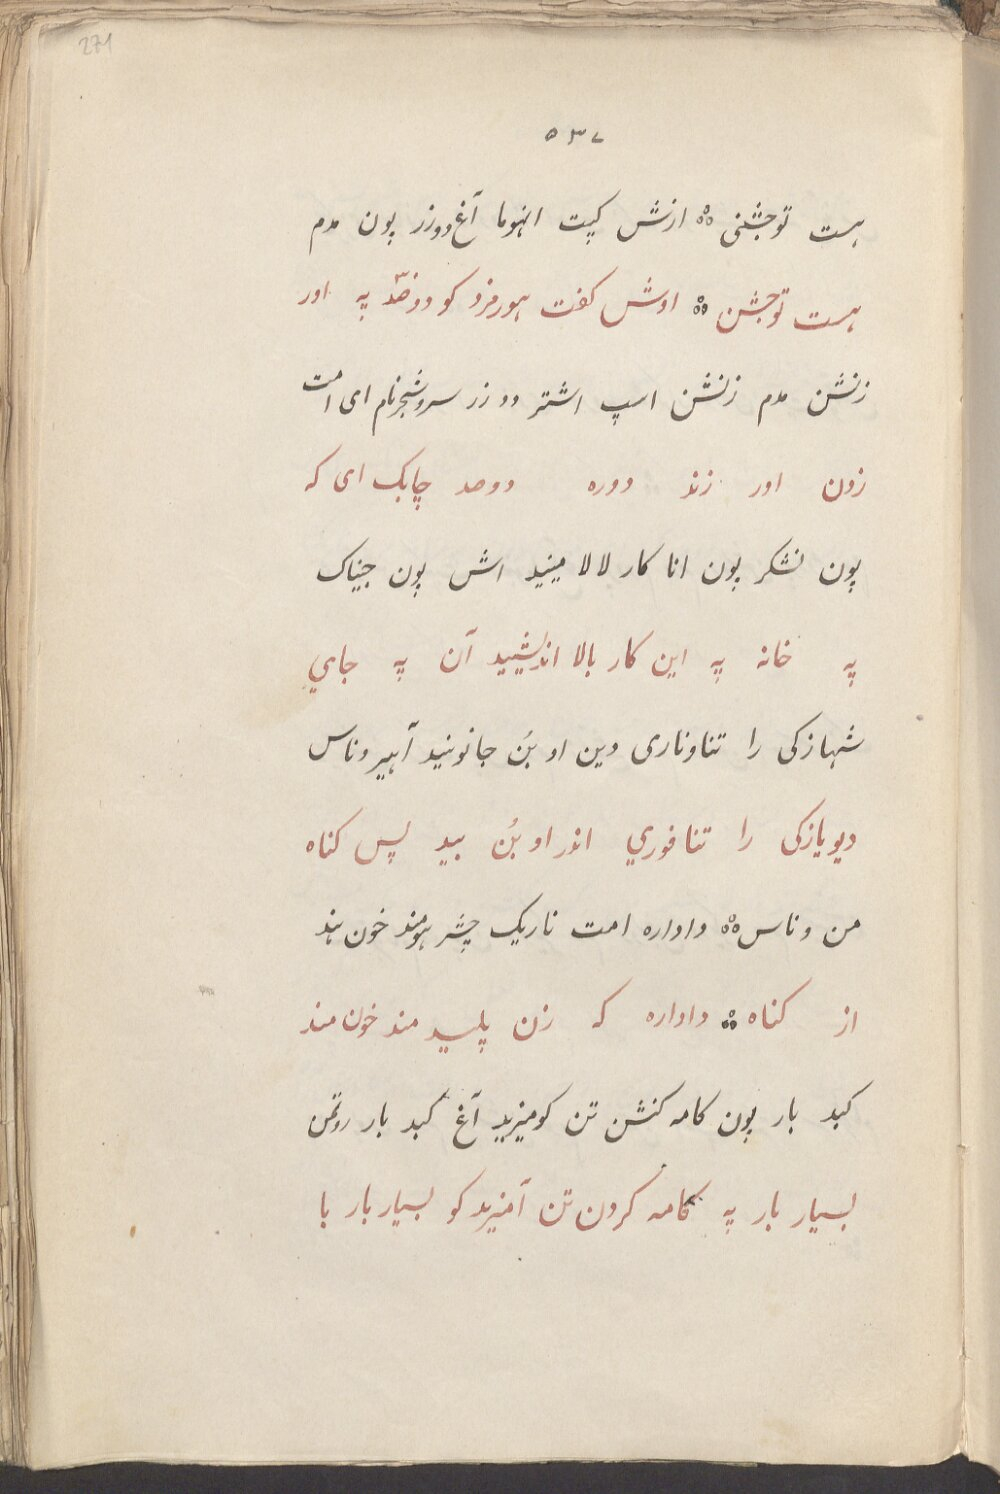 271
۵۳۷
هست توجشنی ازش کپت انهوما آغ دووزر پون مدم
هست توجشن اوش کفت هورمزد کو دوصد په اور
زنشن مدم زنشن اسپ اشتر دو زر سروشچرنام ای امت
زدن اور زند دوره دوصد چابک ای که
پون نشکر پون انا کار لالا مینید اش پون جیناک
په خانه په این کار بالا اندیشیید آن په جاي
شهازکی را تناوناری دین او بُن جانونید آهیر وناس
دیویازکی را تنافوري اندر او بُن بید پس کناه
من وناس داداره امت ناریک چشر هومند خون هند
از کناه داداره که زن پلید مند خون مند
کبد بار پون کامه کنشن تن کومیزید آغ کبد بار روتمن
بسیار بار په کامه کردن تن آمیزید کو بسیار بار با